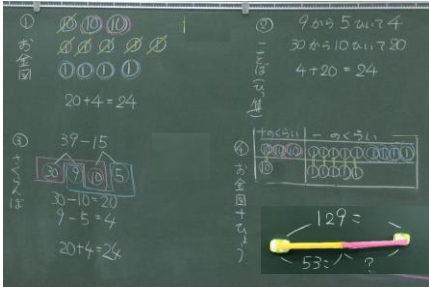 ①
お金図
⑩ ⑩ ⑩
① ① ① ① ①
① ① ① ①
20+4=24
②
ことば(ひっ算)
9から5ひいて4
30から10ひいて20
4+20=24
③
さくらんぼ
39-15
30 9 10 5
30-10=20
9-5=4
20+4=24
④
お金図+ひょう
十のくらい 一のくらい
⑩ ⑩ ⑩ ① ① ① ① ① ① ① ① ①
⑩ ① ① ① ① ①
129=
53= ?